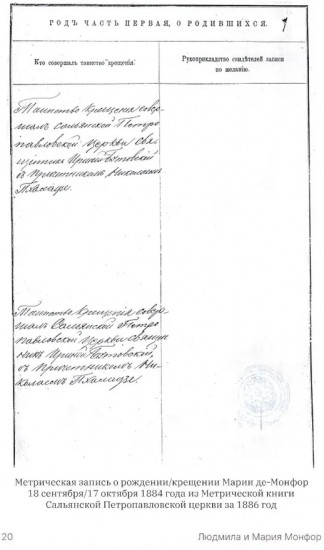 ГОДЪ ЧАСТЬ ПЕРВАЯ, О РОДИВШИХСЯ.
Кто совершалъ таинство крещенія?
Рукоприкладство свидѣтелей записи
по желанію.
Таинство Крещенія совер
шалъ Сальянской Петро
павловской церкви Свя
щенникъ
съ Причетникомъ Николаемъ
Таинство Крещенія совер
шалъ Сальянской Петро
павловской церкви Священ
никъ
съ Причетникомъ Ни
колаемъ
Метрическая запись о рождении/крещении Марии де-Монфор
18 сентября/17 октября 1884 года из Метрической книги
Сальянской Петропавловской церкви за 1886 год
20
Людмила и Мария Монфор